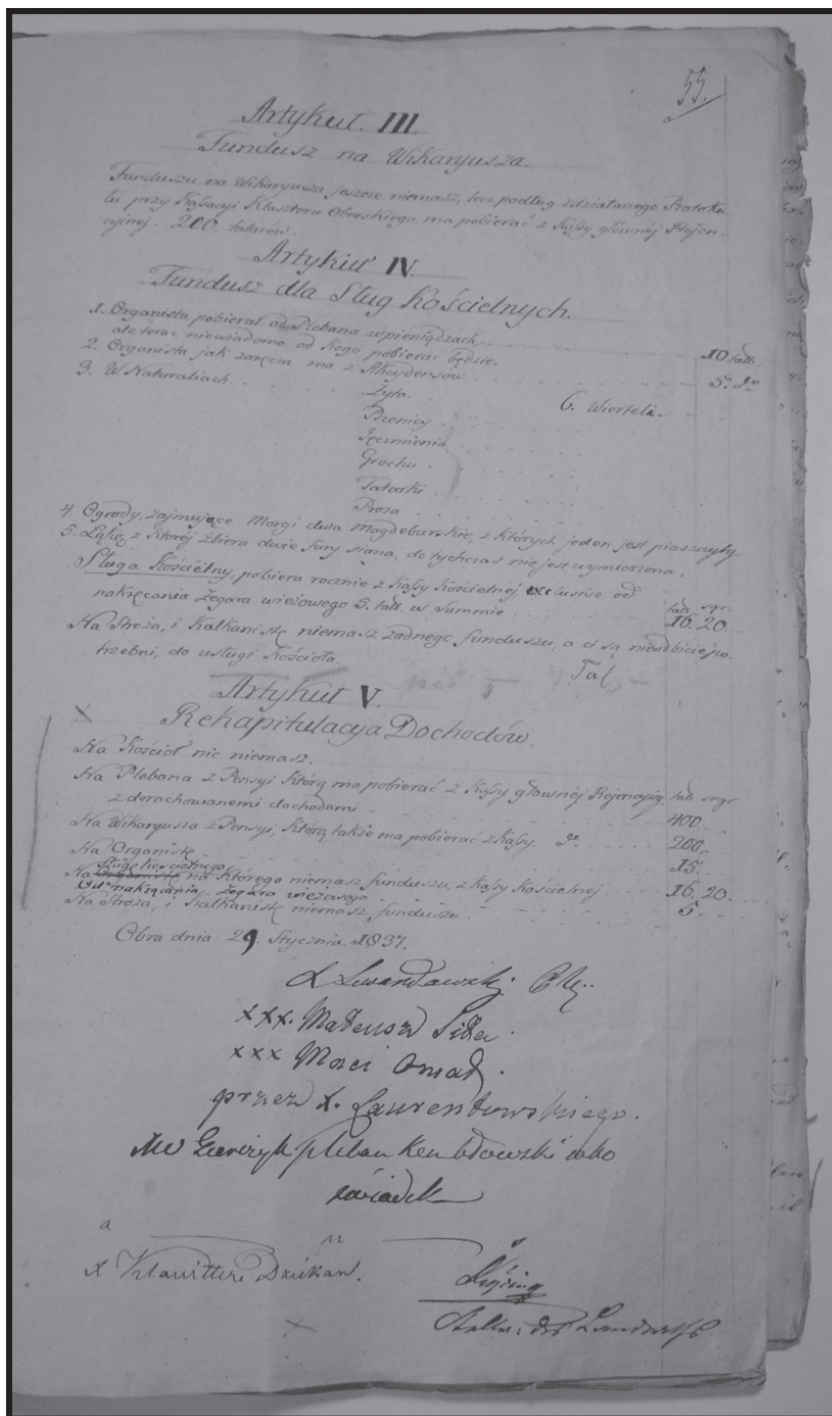 55.
Artykuł III
Fundusz na Wikaryusza.
Funduszu na Wikaryusza jeszcze niemasz, lecz podług zdziałanego Protoku-
łu przy Kassacyi Klasztoru Oberskiego, ma pobierać z Kassy głównej Rejen-
cyjnej 200. talarów.
Artykuł IV.
Fundusz dla Sług Kościelnych.
1. Organista pobierał od Plebana w pieniądzach 10 tall.
ale teraz niewiadomo od kogo pobierać będzie.
2. Organista jak zaręcza ma z Akcydensów 5.
3. W Naturaliach
Żyta. 6. Wierteli.
Pszenicy
Jęczmienia
Grochu
Tatarki
Prosa
4. Ogrody, zajmujące Morgi dwa Magdeburskie, z których jeden jest piaszczysty.
5. Łąkę, z której zbiera dwie fury siana, do tychczas nie jest wymierzona.
Sługa Kościelny, pobiera rocznie z Kassy Kościelnej exclusive od tall. sgr.
nakręcania Zegara wieżowego 5. tall. w Summie 16. 20.
Na Stróża, i Kalkanistę niemasz żadnego funduszu, a ci są nieodbicie po-
trzebni, do usługi Kościoła.
Tal,
Artykuł V.
Rekapitulacya Dochodów.
Na Kościół nic niemasz.
Na Plebana z Pensyi którą ma pobierać z Kassy głównej tall. srgr
z dorachowanemi dochodami 400.
Na Wikaryusza z Pensyi, którą także ma pobierać z Kassy 200.
Na Organistę 15.
Sługę Kościelnego
Na na którego niemasz funduszu, z Kassy Kościelnej 16. 20.
Od nakręcania Zegara wieżowego 5
Na Stróża, i Kalkanistę niemasz funduszu
Obra dnia 29. Stycznia 1837.
xxx. Mateusz
xxx
przez X.
pleban
świadek
X Klawitter Dziekan.